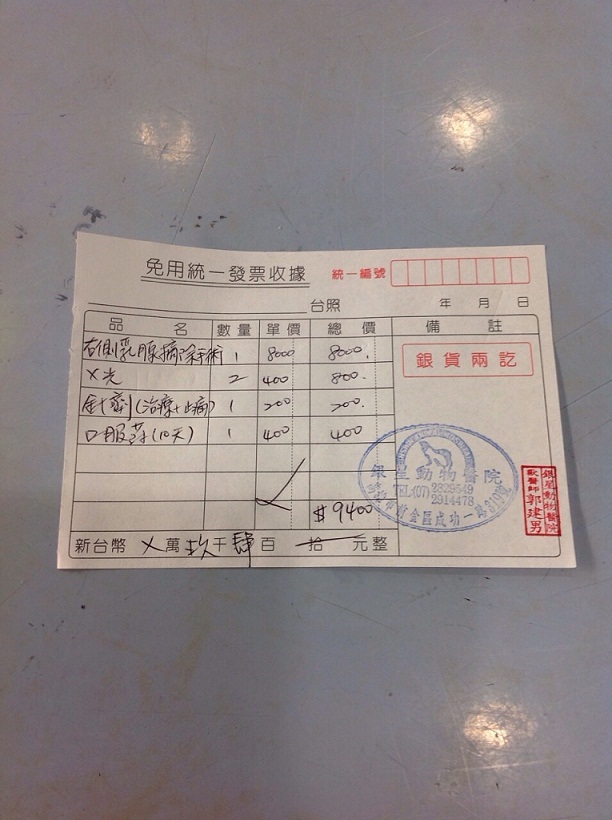 免用統一發票收據
統一編號
台照 年 月 日
品 名 數量 單價 總 價 備 註
右側乳腺摘除手術 1 8000 8000.
X光 2 400 800.
針劑(治療+止痛) 1 200 200.
口服藥(10天) 1 400 400
$9400
新台幣 X萬玖千肆百 拾 元整
銀貨兩訖
銀星動物醫院
TEL:(07)
2914478
前金區成功一路
銀星動物醫院
獸醫師 郭建男